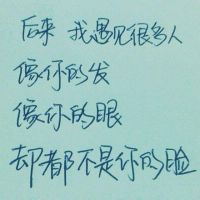 后来 我遇见很多人
像你的发
像你的眼
却都不是你的脸